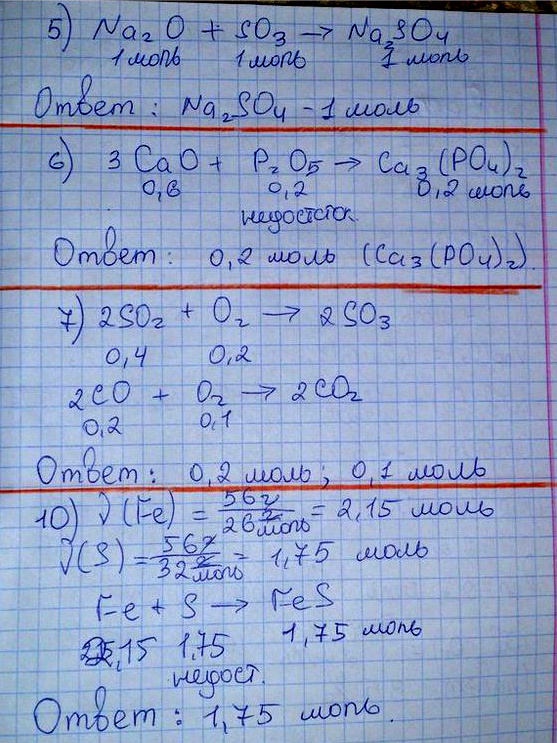 5) Na₂O + SO₃ → Na₂SO₄
1 моль 1 моль 1 моль
Ответ: Na₂SO₄ - 1 моль
6) 3 CaO + P₂O₅ → Ca₃(PO₄)₂
0,6 0,2 0,2 моль
недостаток
Ответ: 0,2 моль (Ca₃(PO₄)₂).
7) 2SO₂ + O₂ → 2SO₃
0,4 0,2
2CO + O₂ → 2CO₂
0,2 0,1
Ответ: 0,2 моль; 0,1 моль
10) ν(Fe) = 56г / 26 г/моль = 2,15 моль
ν(S) = 56г / 32 г/моль = 1,75 моль
Fe + S → FeS
2,15 1,75 1,75 моль
недост.
Ответ: 1,75 моль.